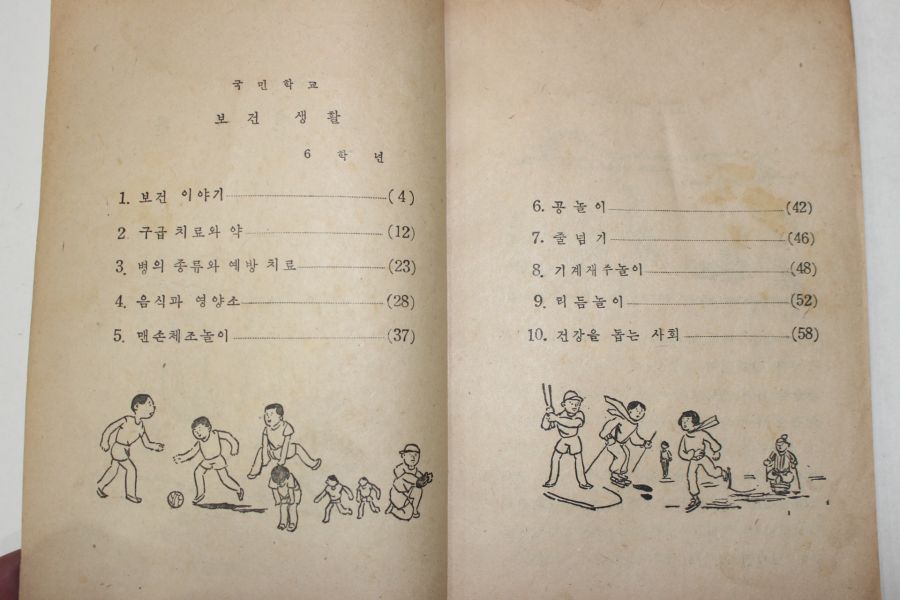 국민학교
보건 생활
6 학년
1. 보건 이야기 (4)
2 구급 치료와 약 (12)
3. 병의 종류와 예방 치료 (23)
4. 음식과 영양소 (28)
5. 맨손체조놀이 (37)
6. 공놀이 (42)
7. 줄넘기 (46)
8. 기계재주놀이 (48)
9. 리듬놀이 (52)
10. 건강을 돕는 사회 (58)